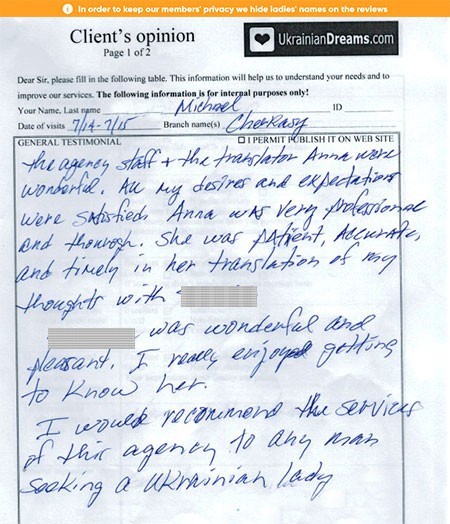 i In order to keep our members' privacy we hide ladies' names on the reviews
Client's opinion
Page 1 of 2
UkrainianDreams.com
Dear Sir, please fill in the following table. This information will help us to understand your needs and to
improve our services. The following information is for internal purposes only!
Your Name, Last name Michael ID
Date of visits 7/14-7/15 Branch name(s) Cherkasy
GENERAL TESTIMONIAL I PERMIT PUBLISH IT ON WEB SITE
the agency staff + the translator Anna were
wonderful. All my desires and expectations
were satisfied. Anna was very professional
and thorough. She was patient, accurate,
and timely in her translation of my
thoughts with
was wonderful and
pleasant. I really enjoyed getting
to know her.
I would recommend the services
of this agency to any man
seeking a Ukrainian lady